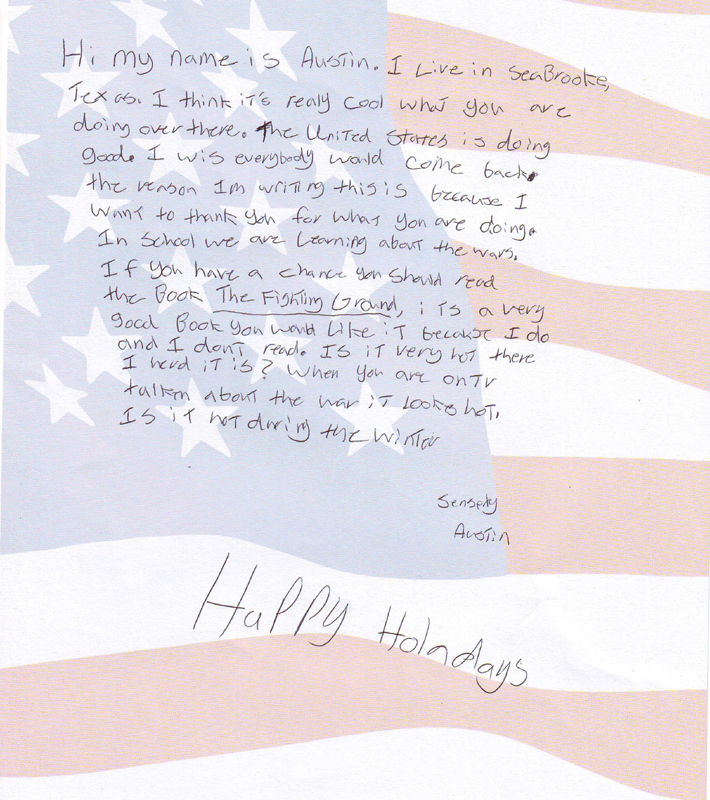 Hi my name is Austin. I Live in SeaBrooke,
Texas. I think it's realy cool what you are
doing over there. The United States is doing
good. I wis everybody would come back
the reason Im writing this is because I
want to thank you for what you are doing.
In School we are Learning about the wars.
If you have a chance you should read
the Book The Fighting Ground, iTs a very
good Book you would Like iT because I do
and I dont read. Is iT very hot there
I herd iT is? When you are on Tv
talken about the war iT Looks hot.
Is iT hot during the winter
Senserly
Austin
Happy Holadays